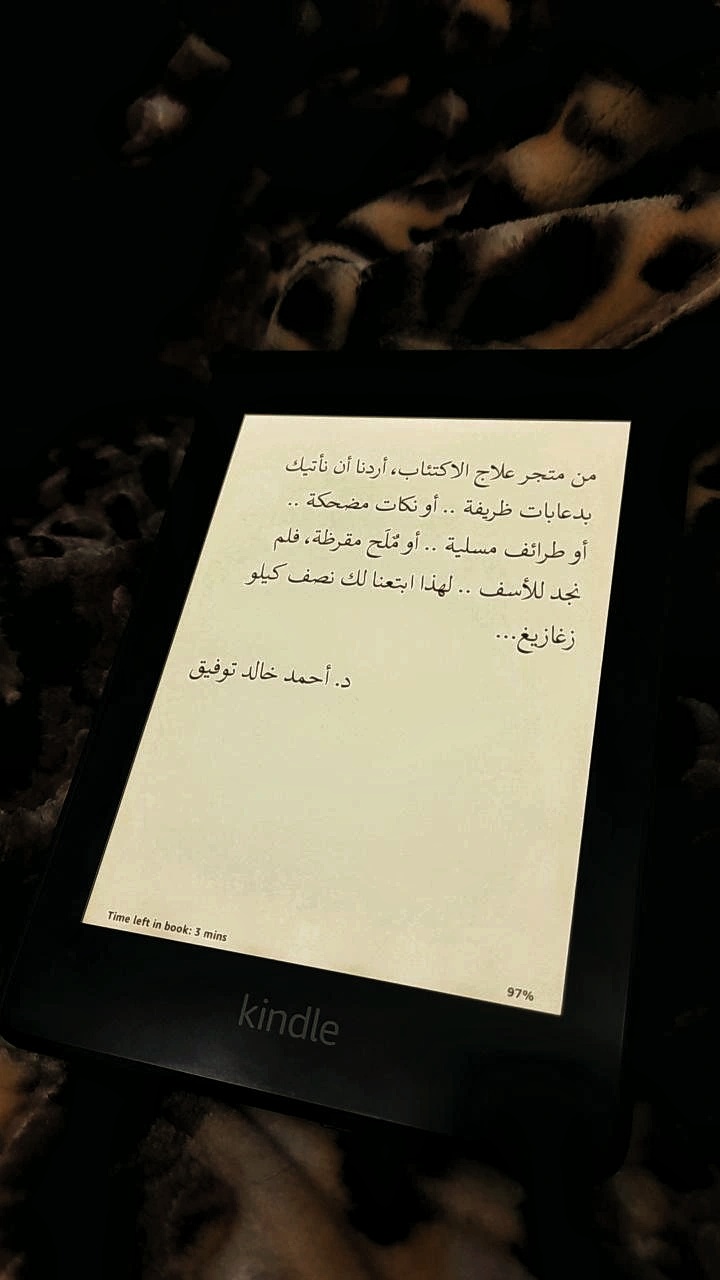 من متجر علاج الاكتئاب، أردنا أن نأتيك
بدعابات ظريفة .. أو نكات مضحكة ..
أو طرائف مسلية .. أو مٌلَح مقرظة، فلم
نجد للأسف .. لهذا ابتعنا لك نصف كيلو
زغازيغ...
د. أحمد خالد توفيق
Time left in book: 3 mins
97%
kindle